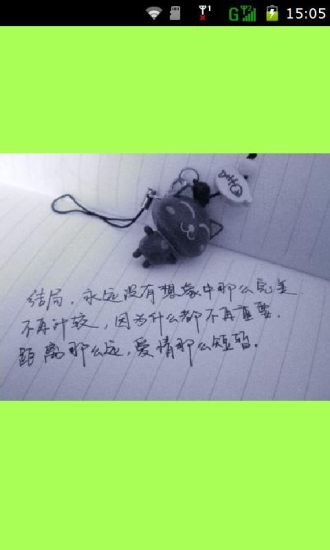 15:05
结局，永远没有想象中那么完美
不再计较，因为什么都不再重要．
距离那么远，爱情那么短暂．